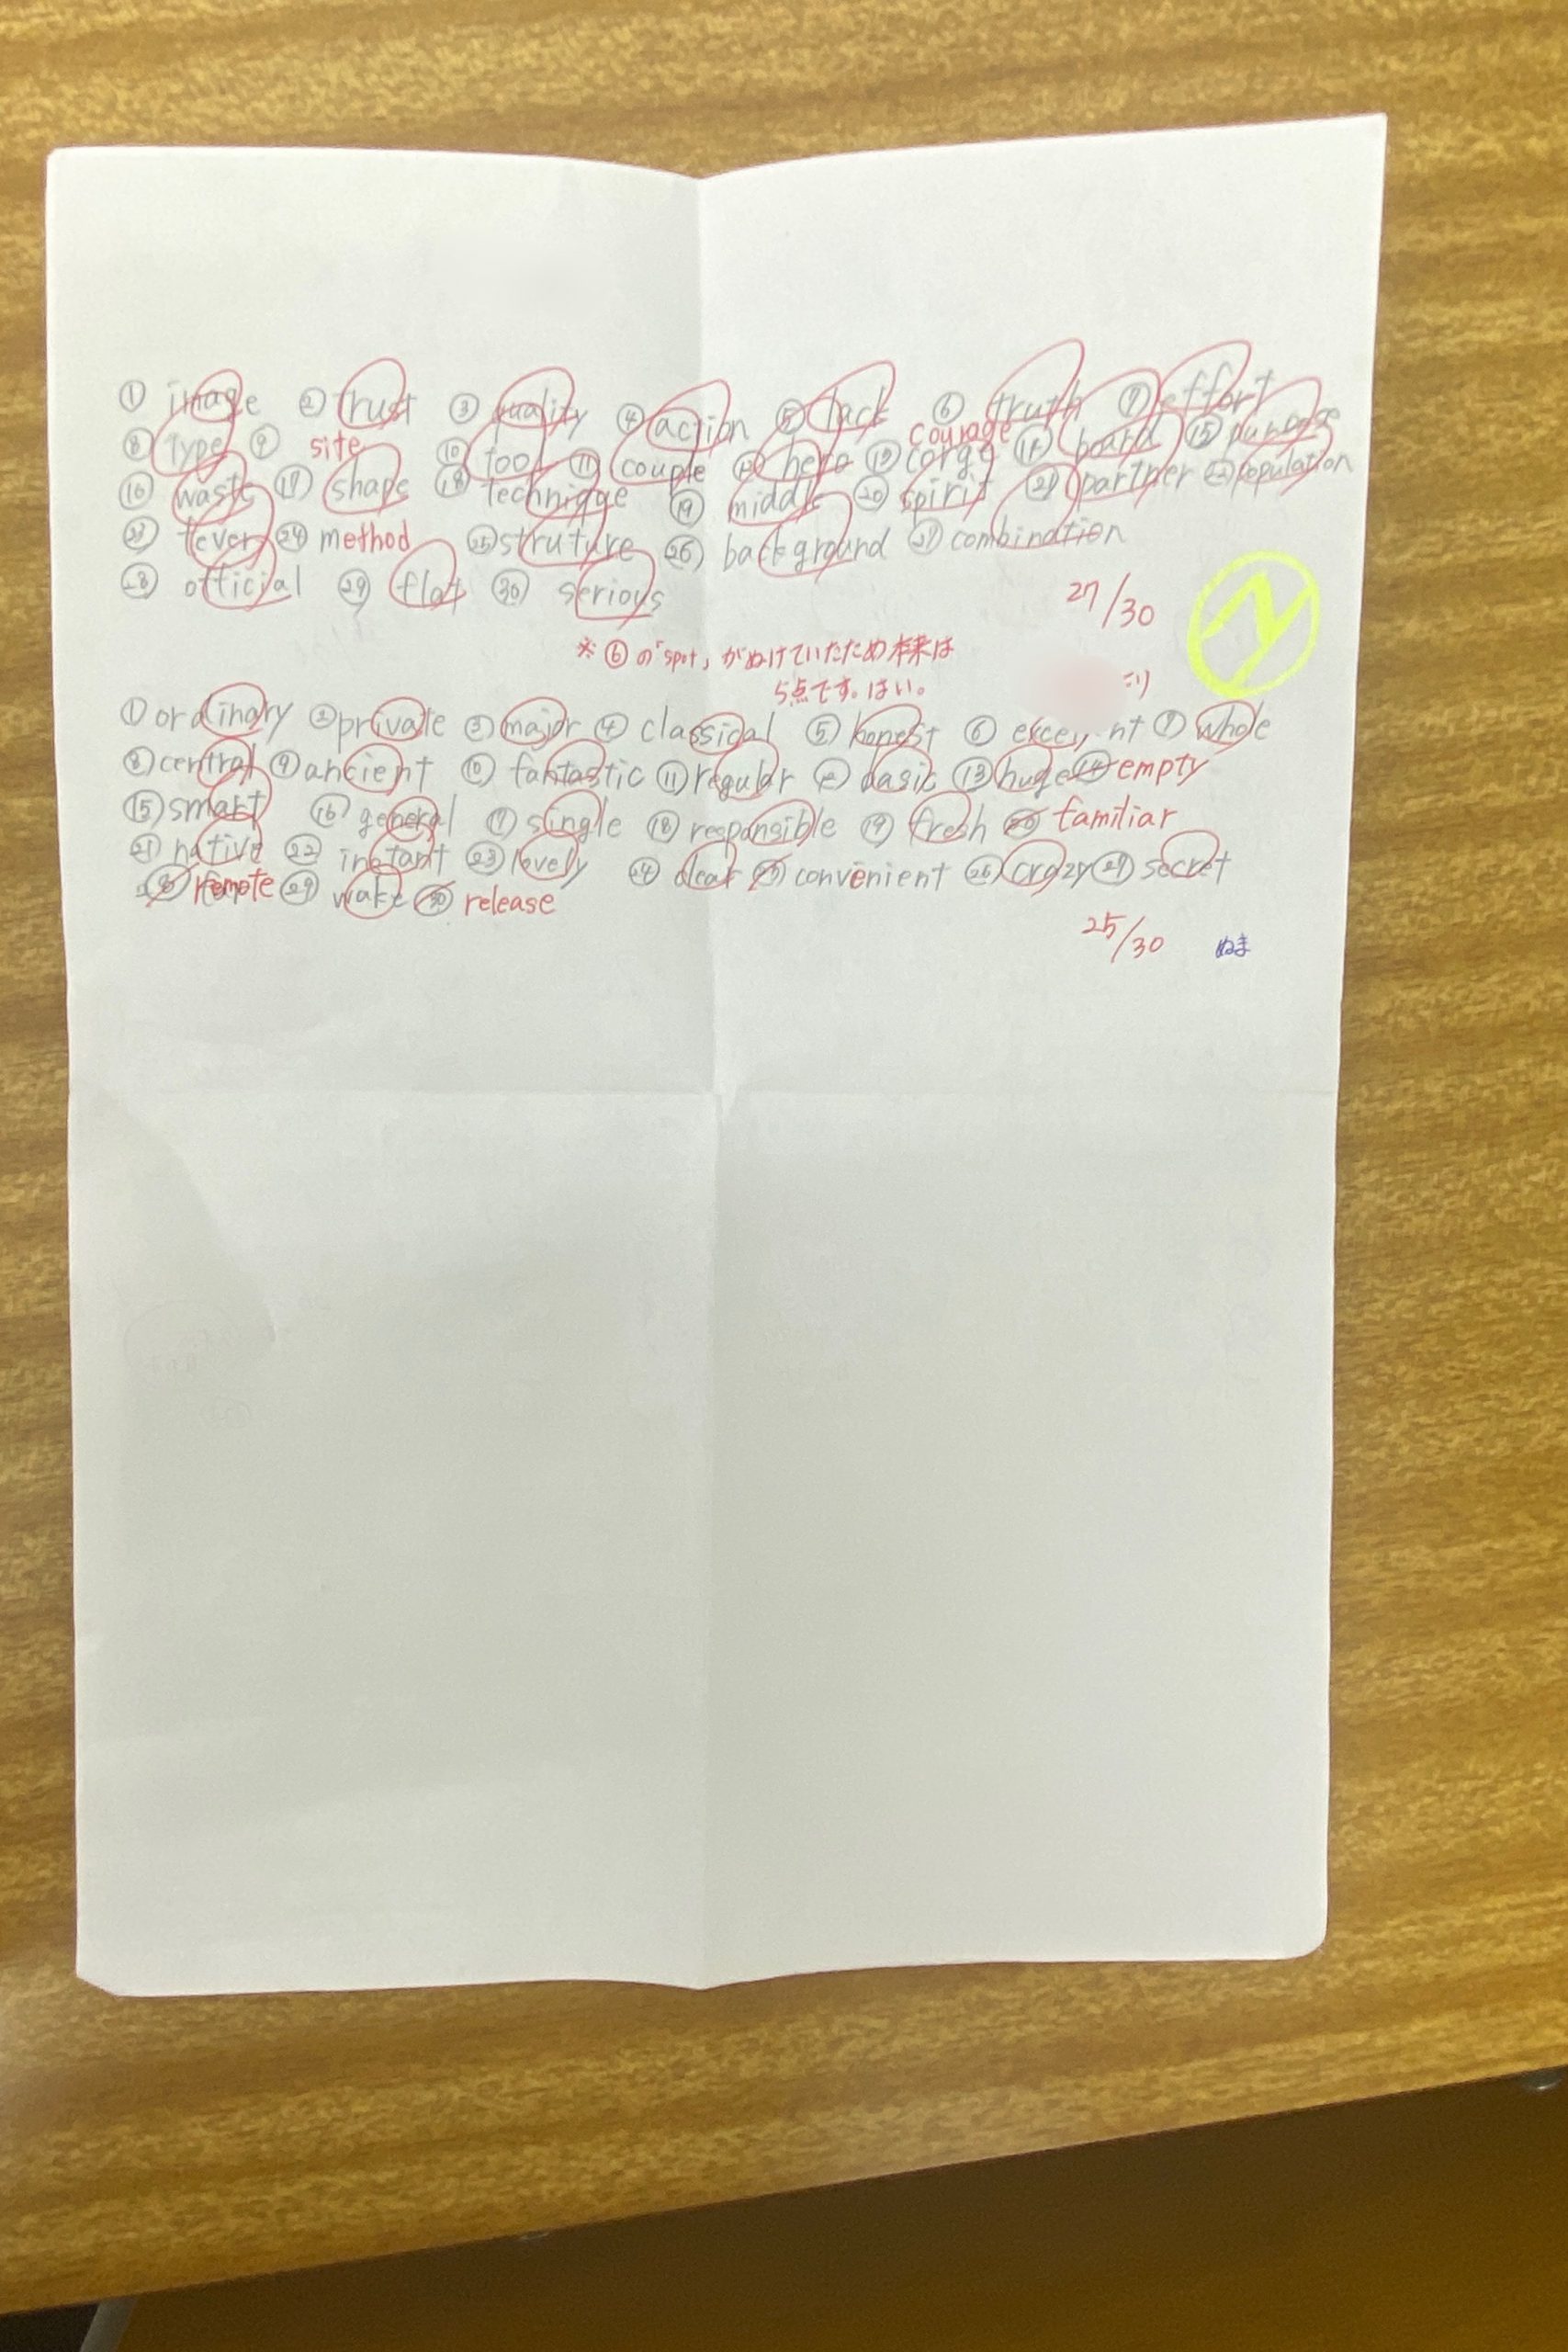 ① image ② trust ③ quality ④ action ⑤ lack ⑥ truth ⑦ effort
⑧ type ⑨ site ⑩ tool ⑪ couple ⑫ hero ⑬ corge courage ⑭ board ⑮ purpose
⑯ waste ⑰ shape ⑱ technique ⑲ middle ⑳ spirit ㉑ partner ㉒ population
㉓ fever ㉔ method ㉕ struture ㉖ background ㉗ combination
㉘ official ㉙ flat ㉚ serious
27/30
※⑥の「spot」がぬけていたため本来は
5点です。はい。
① ordinary ② private ③ major ④ classical ⑤ honest ⑥ ⑦ whole
⑧ central ⑨ ancient ⑩ fantastic ⑪ regular ⑫ basic ⑬ huge ⑭ empty
⑮ smart ⑯ general ⑰ single ⑱ responsible ⑲ fresh ⑳ familiar
㉑ native ㉒ instant ㉓ lovely ㉔ clear ㉕ convenient ㉖ crazy ㉗ secret
㉘ remote ㉙ wake ㉚ release
25/30 ぬま